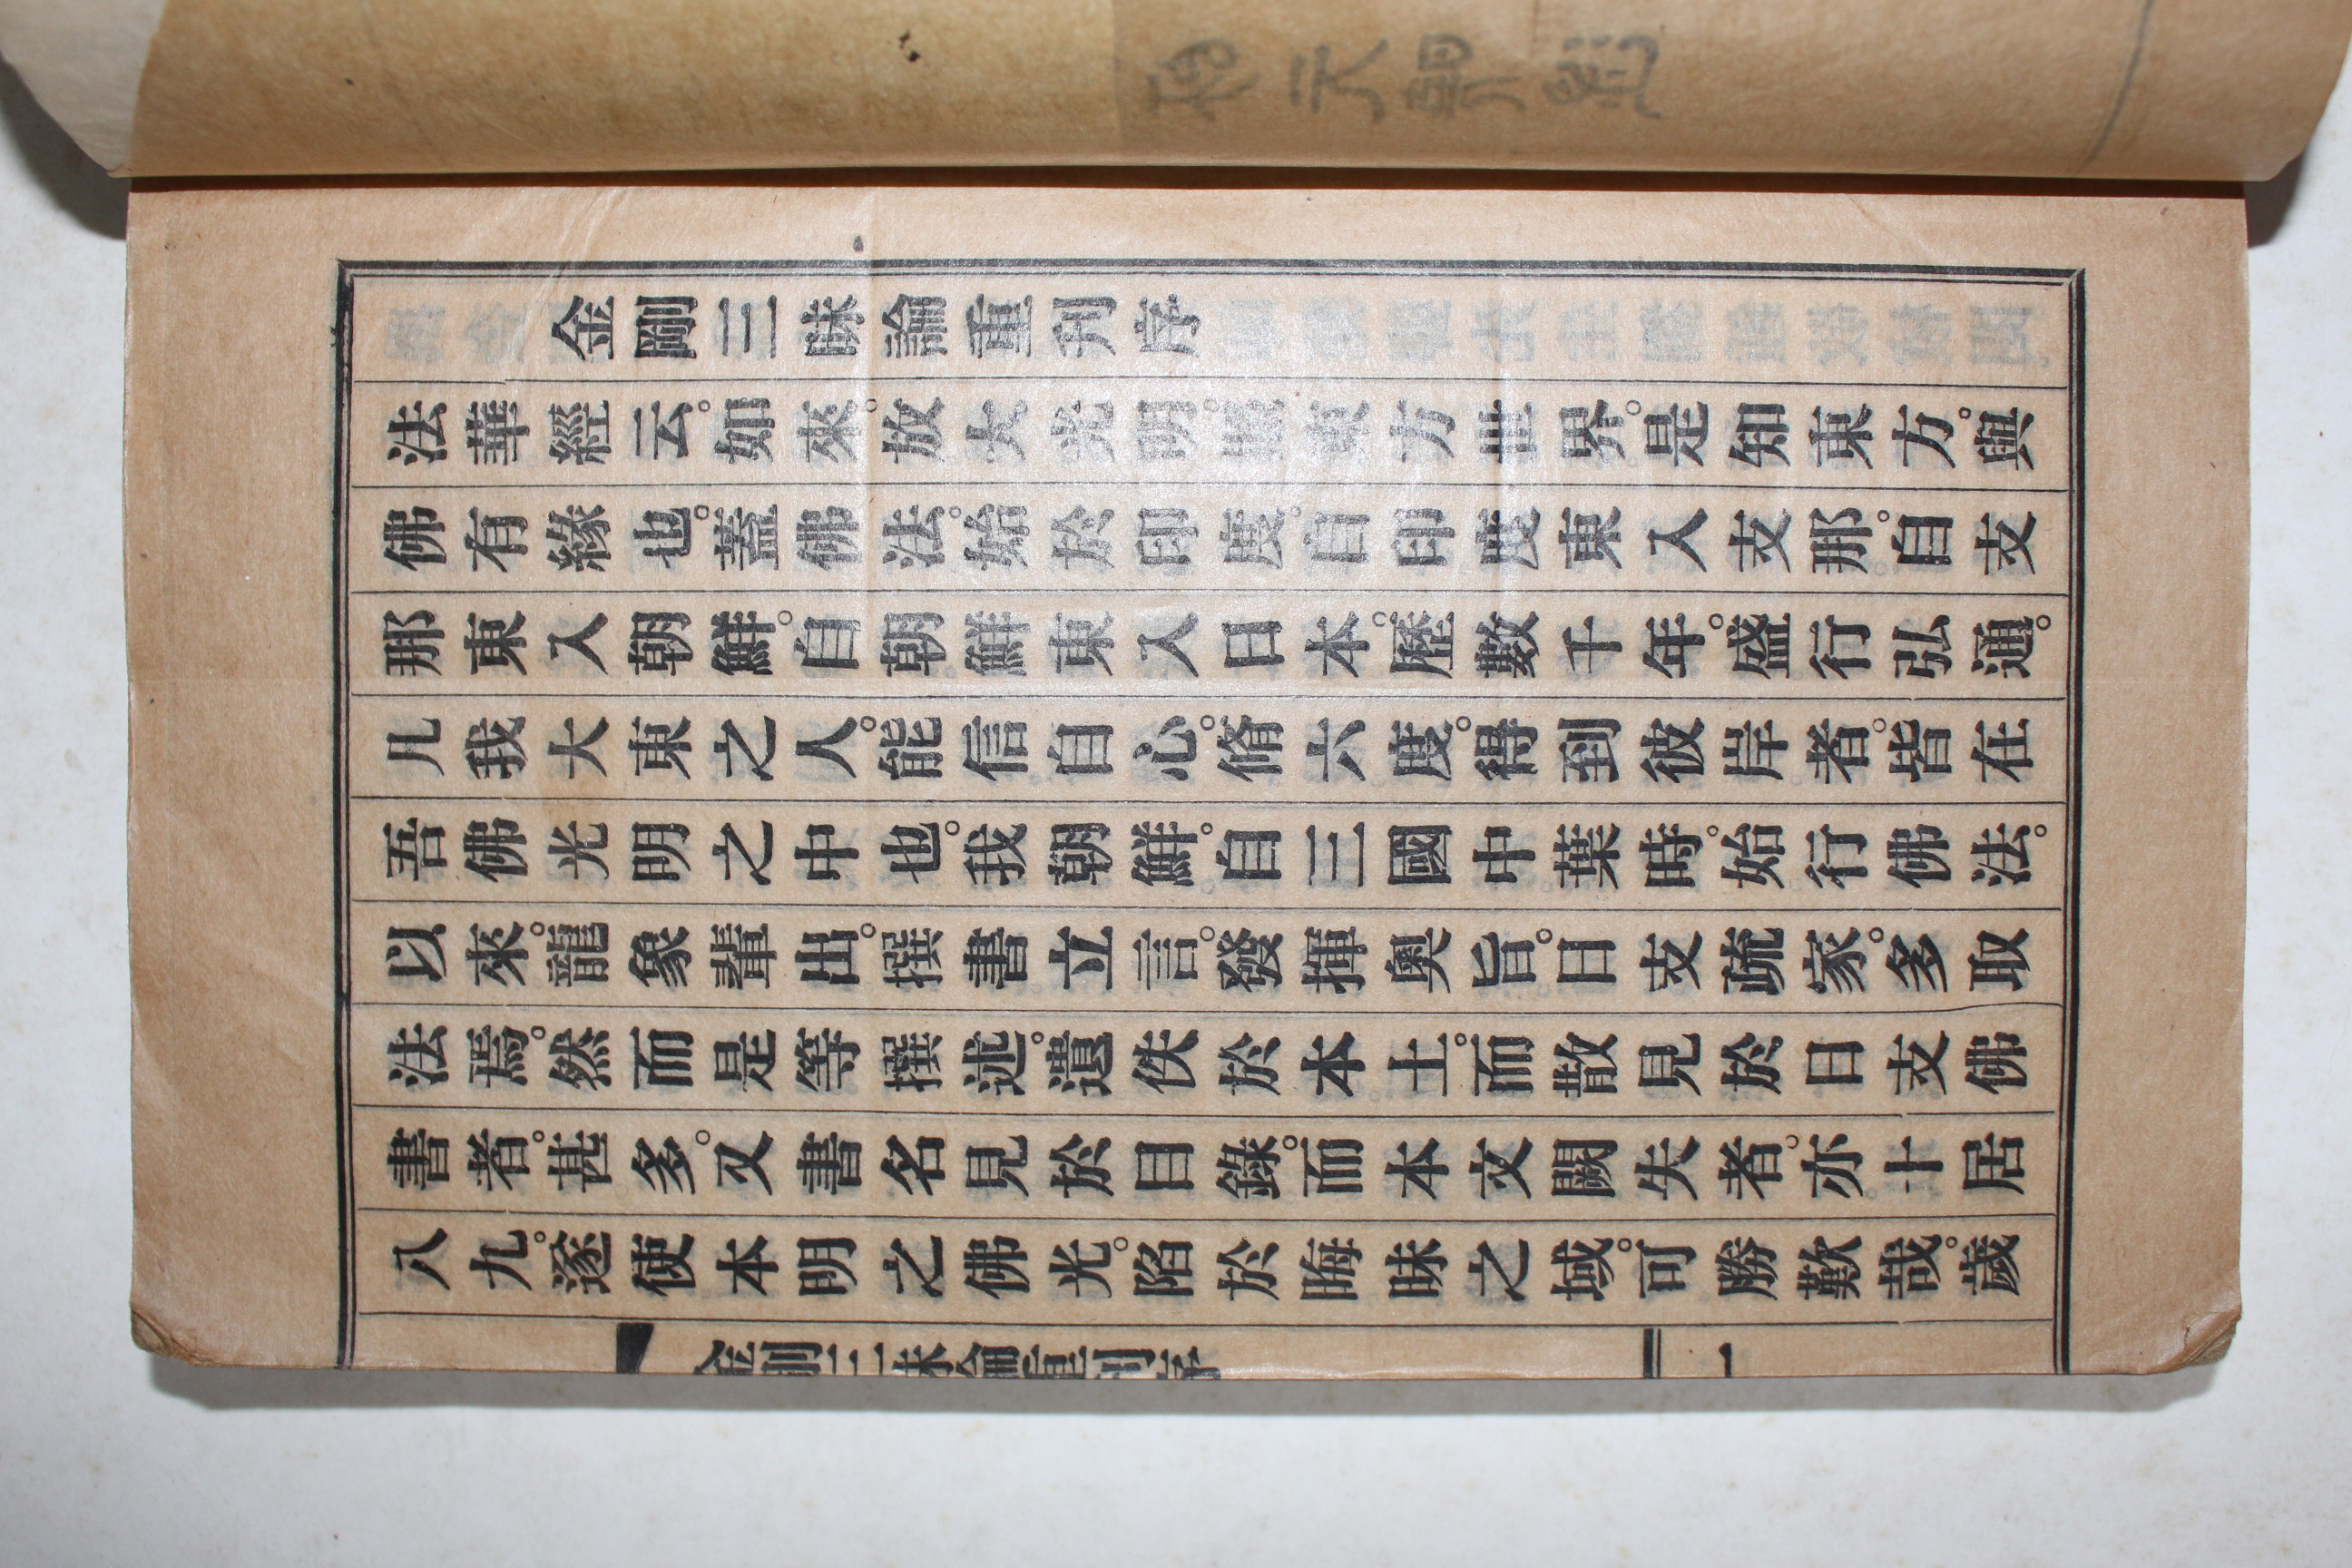 金剛三昧論重刊序
法華經云。如來。放大光明。照東方世界。是知東方。與
佛有緣也。蓋佛法。始於印度。自印度東入支那。自支
那東入朝鮮。自朝鮮東入日本。歷數千年。盛行弘通。
凡我大東之人。能信自心。脩六度。得到彼岸者。皆在
吾佛光明之中也。我朝鮮。自三國中葉時。始行佛法。
以來。龍象輩出。撰書立言。發揮奧旨。日支疏家。多取
法焉。然而是等撰述。遺佚於本土。而散見於日支佛
書者。甚多。又書名見於目錄。而本文闕失者。亦十居
八九。遂使本明之佛光。陷於晦昧之域。可勝歎哉。歲
金剛三昧論重刊序 一